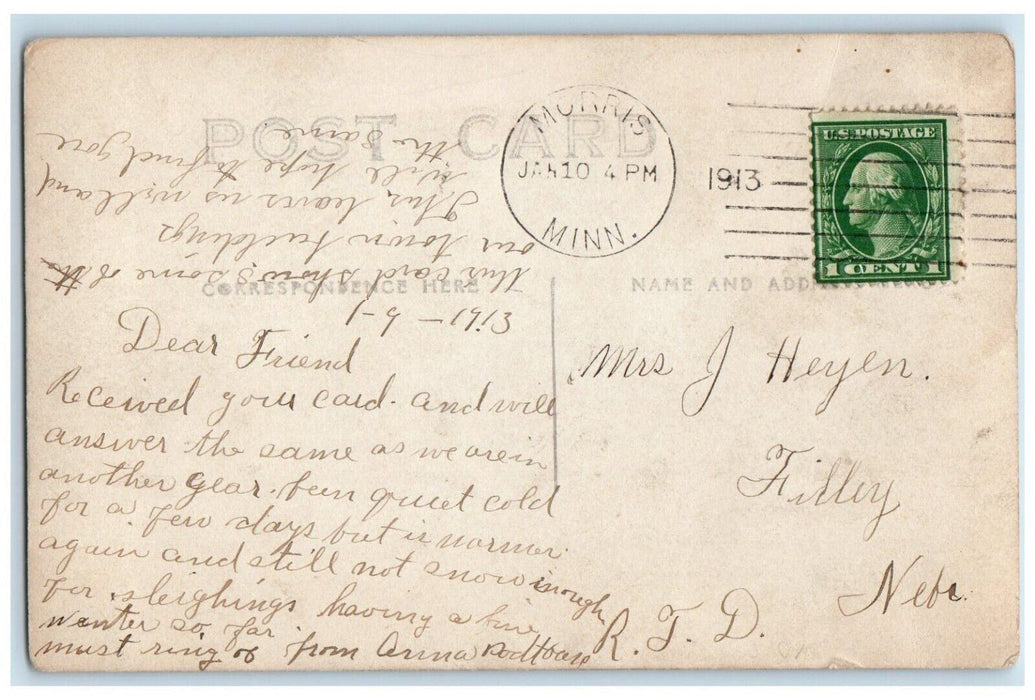 POST CARD
MORRIS
JAN 10 4 PM
1913
MINN.
U.S. POSTAGE
1 CENT 1
CORRESPONDENCE HERE
NAME AND ADDRESS
1-9-1913
Dear Friend
Received your card. and will
answer the same as we are in
another year. been quiet cold
for a few days but is warmer
again and still not snow inough
for sleighings having a fine
winter so far
must ring of from Anna
this card shows some of
our town buildings
This leaves us well and
will hope to find you
the same
Mrs J Heyen.
Filley
Nebr.
R. F. D.